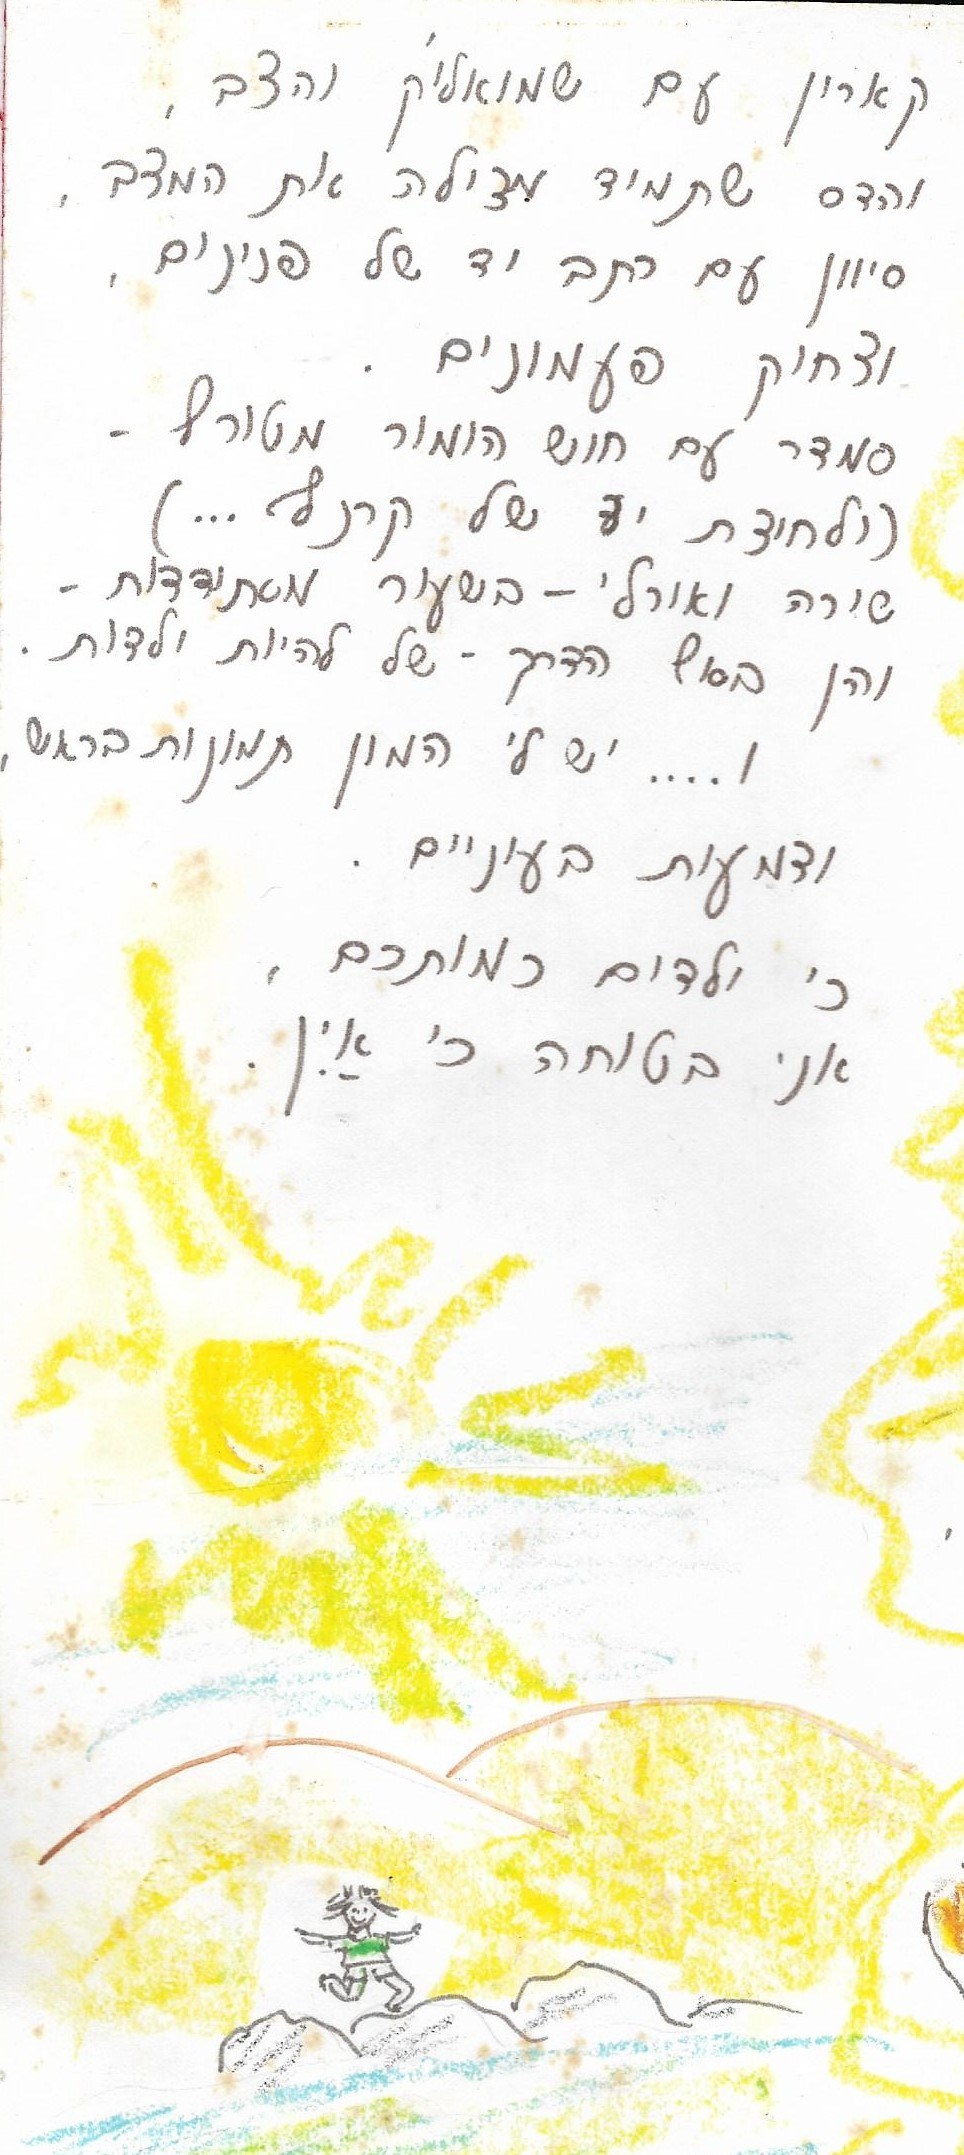 קארון עם שמואליק' והצב,
והדס שתמיד מצילה את המצב,
סיוון עם כתב יד של פנינים,
וצחוק פעמונים.
סמדר עם חוש הומור מטורף -
(ולחיצת יד של קרנף...)
שירה ואורלי - בשעור מסתודדות -
והן בסוף הדרך - של להיות ילדות.
ו.... יש לי המון תמונות בראש,
ודמעות בעיניים.
כי ילדים כמותכם,
אני בטוחה כי אַיִן.